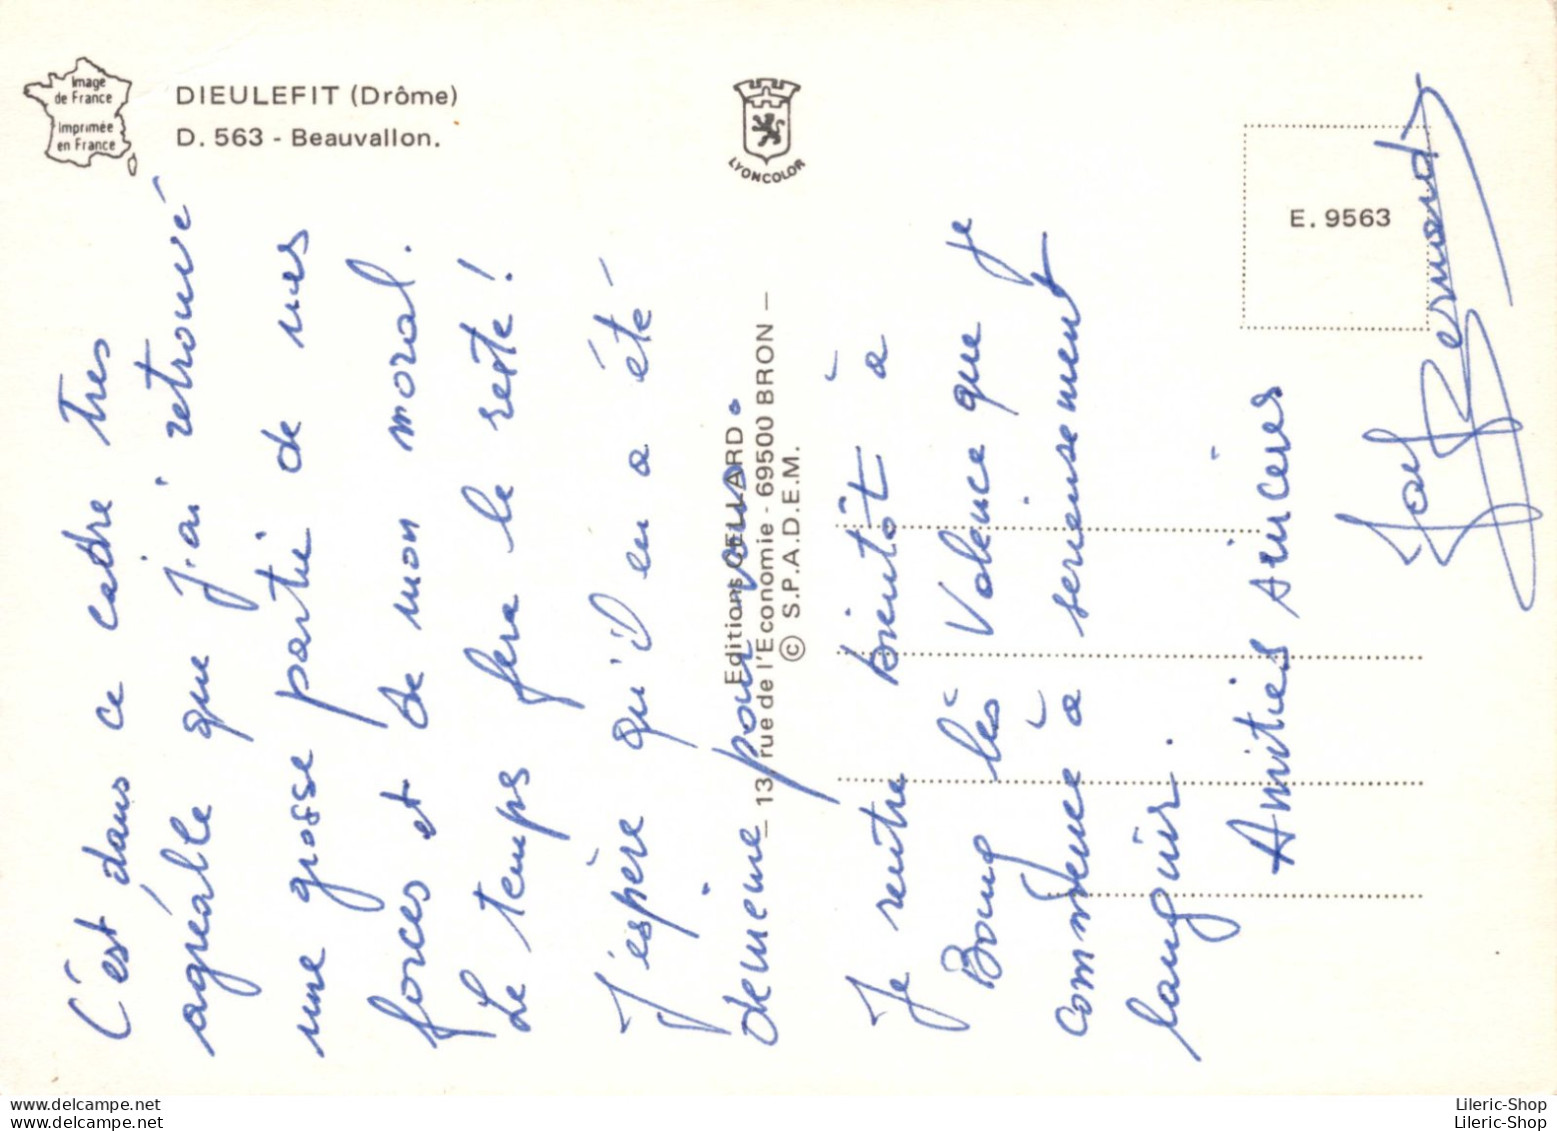 Image
de France
Imprimée
en France
DIEULEFIT (Drôme)
D. 563 - Beauvallon.
LYONCOLOR
E. 9563
Editions CELLARD
— 13, rue de l'Economie - 69500 BRON —
© S.P.A.D.E.M.
C'est dans ce cadre tres
agréable que j'ai retrouvé
une grosse partie de mes
forces et de mon moral.
Le temps fera le reste !
J'espère qu'il en a été
de meme pour vous.
Je rentre bientôt à
Bourg lès Valence que je
commence à serieusement
languir.
Amitiés sincères
Bernard
delcampe.net
Lileric-Shop
Lileric-Shop